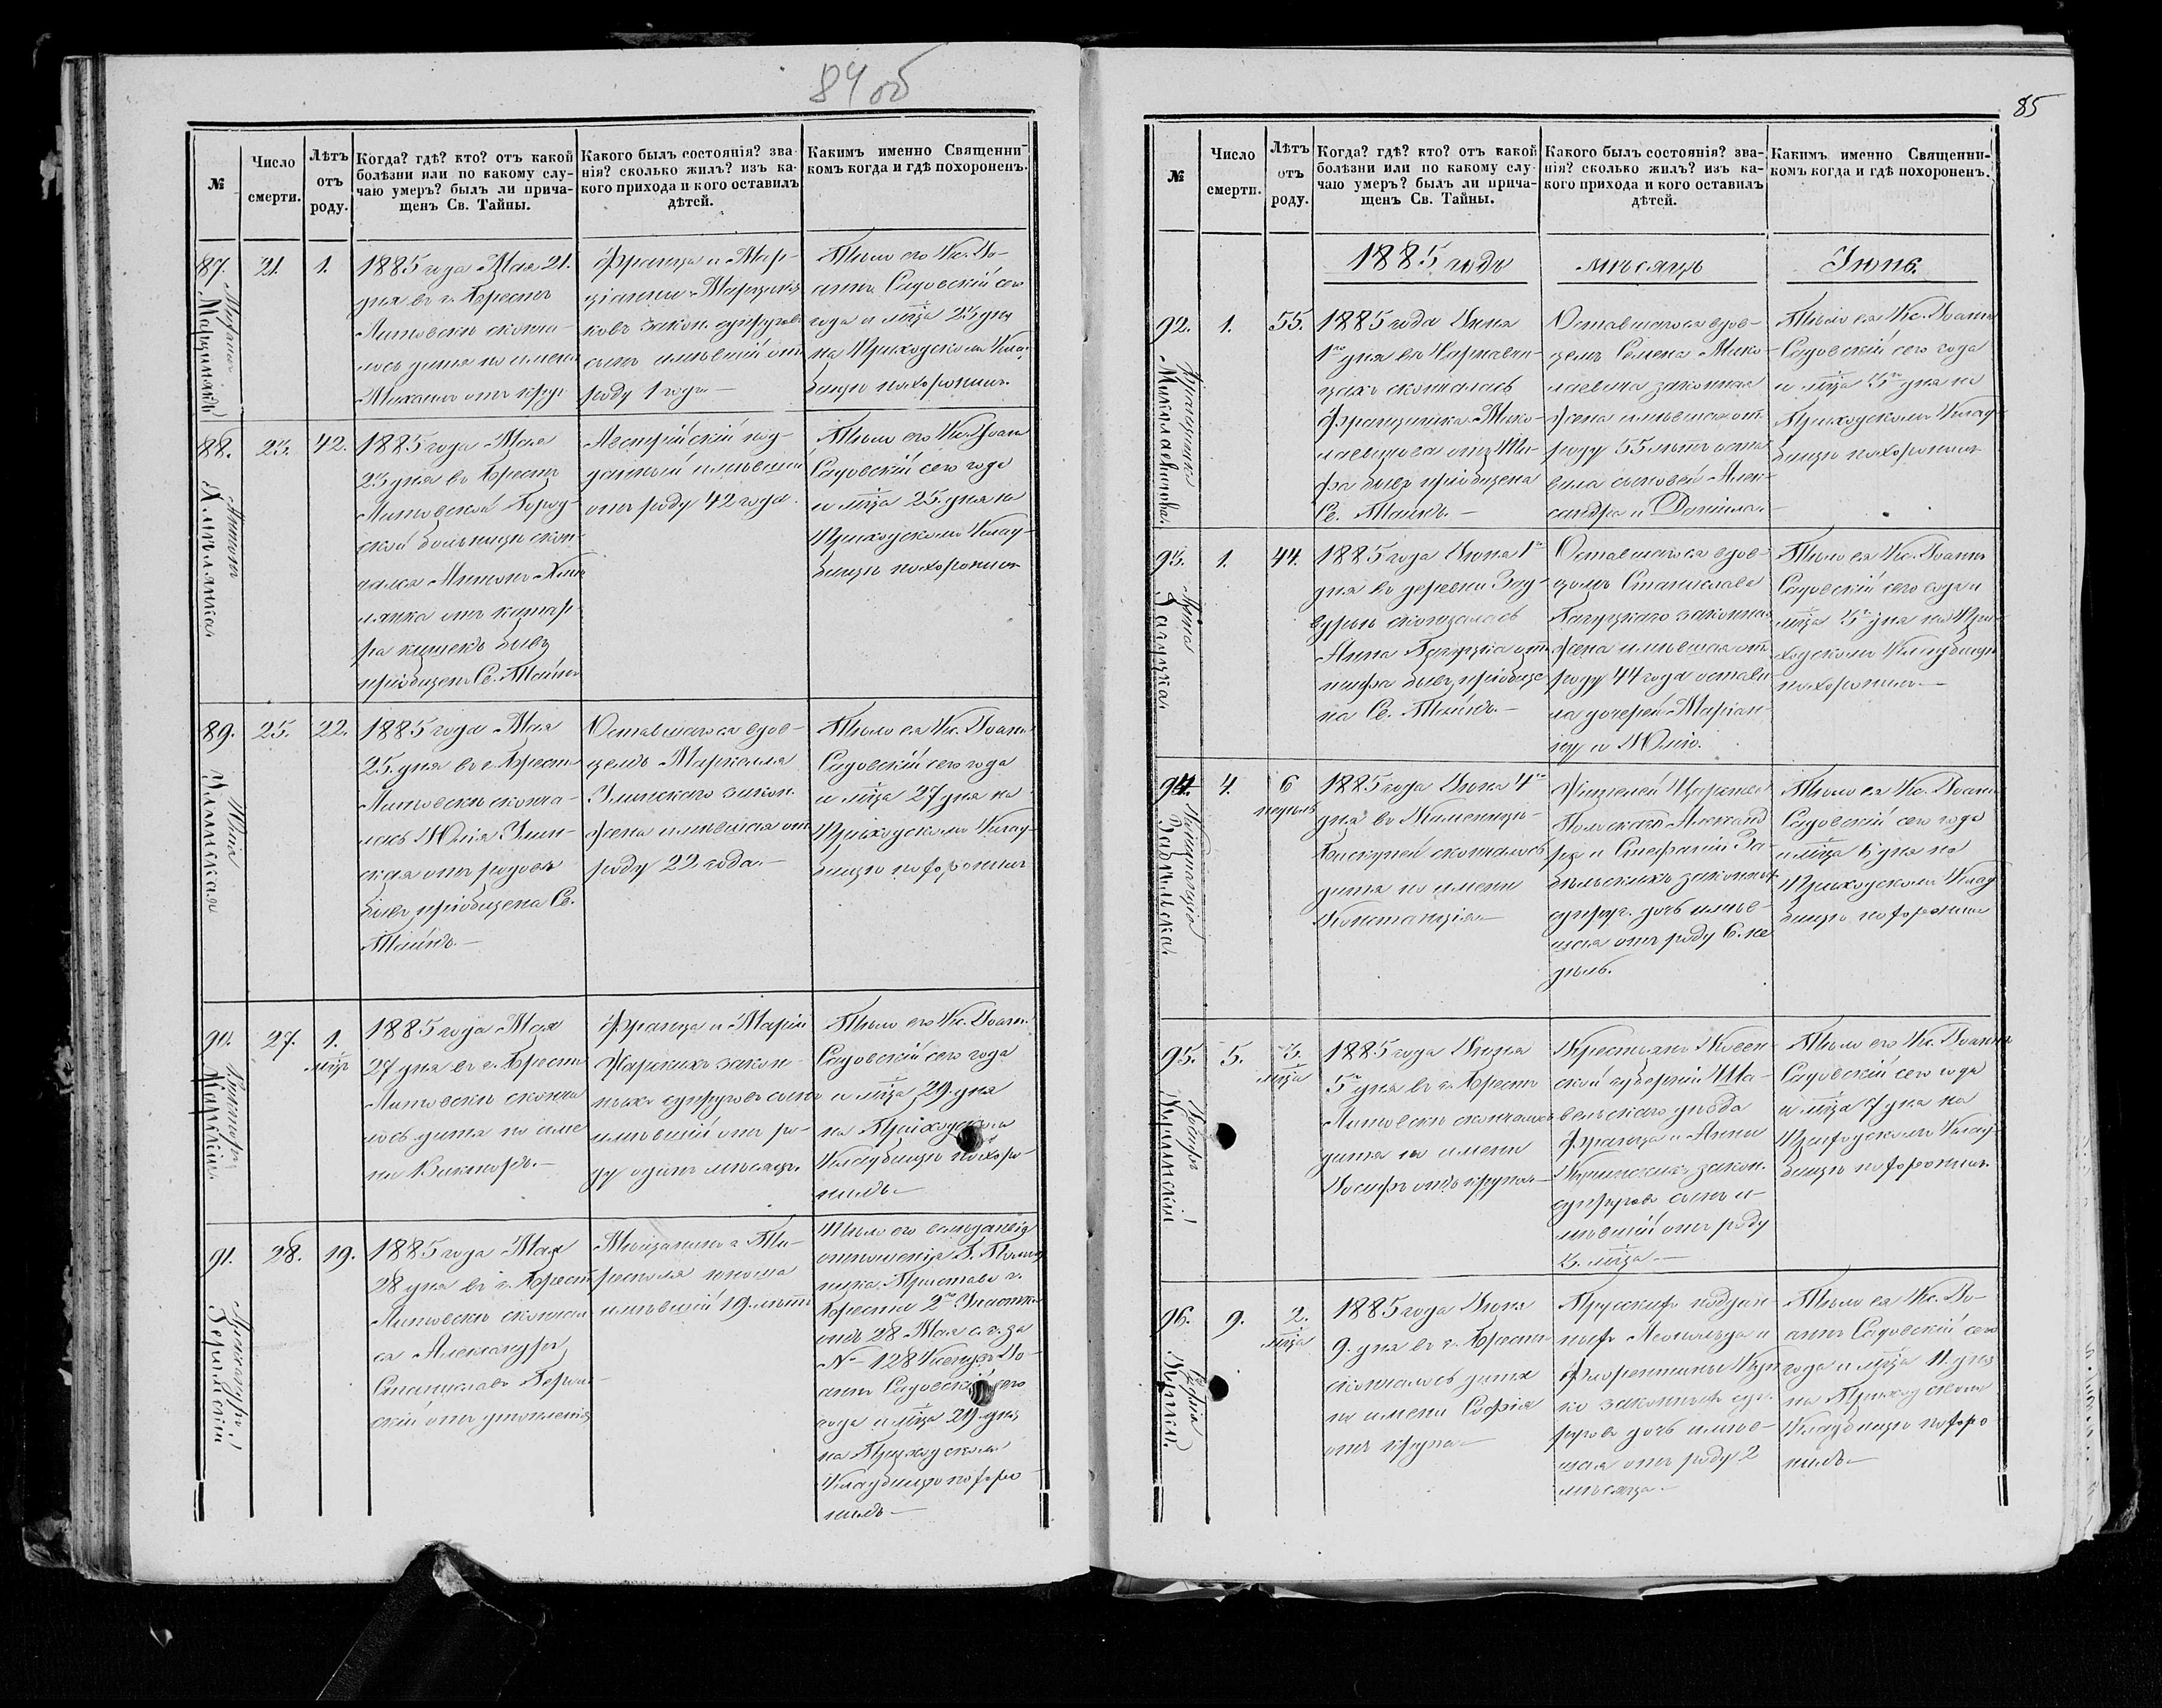 84об
№
Число
смерти.
Лѣтъ
отъ
роду.
Когда? гдѣ? кто? отъ какой
болѣзни или по какому слу-
чаю умеръ? былъ ли прича-
щенъ Св. Тайны.
Какого былъ состоянія? зва-
нія? сколько жилъ? изъ ка-
кого прихода и кого оставилъ
дѣтей.
Какимъ именно Священни-
комъ когда и гдѣ похороненъ.
87.
21.
1.
1885 года Мая 21.
дня въ г. Брестѣ
Литовскѣ сконча-
лось дитя по имени
Михаилъ отъ круп
Франца и Мар-
ціанны
законн. супруговъ
сынъ имѣвшій отъ
роду 1 годъ.—
Тѣло его Кс. Іо-
аннъ Садовскій сего
года и мѣсца 23 дня
на Приходскомъ Клад-
бищѣ похоронилъ.
88.
Антонъ
23.
42.
1885 года Мая
23 дня въ Брестъ
Литовской Город-
ской больницѣ скон-
чался Антонъ
отъ катар-
ра кишекъ бывъ
пріобщенъ Св. Тайнъ
Австрійскій под-
данный имѣвшій
отъ роду 42 года.
Тѣло его Кс. Іоаннъ
Садовскій сего года
и мѣсца 25. дня на
Приходскомъ Клад-
бищѣ похоронилъ
89.
Юлія
Элинская
25.
22.
1885 года Мая
25. дня въ г. Брестѣ
Литовскѣ сконча-
лась Юлія Элин-
ская отъ родовъ
бывъ пріобщена Св.
Тайнъ.—
Оставшагося вдов-
цемъ Маркелла
Элинскаго закон.
жена имѣвшая отъ
роду 22 года.—
Тѣло ея Кс. Іоаннъ
Садовскій сего года
и мѣсца 27 дня на
Приходскомъ Клад-
бищѣ похоронилъ
90.
Викторъ
27.
1.
мѣц
1885 года Мая
27 дня въ г. Брестѣ
Литовскѣ сконча
лось дитя по име
ни Викторъ.—
Франца и Маріи
закон-
ныхъ супруговъ сынъ
имѣвшій отъ ро-
ду одинъ мѣсяцъ.
Тѣло его Кс. Іоаннъ
Садовскій сего года
и мѣсца 29. дня
на Приходскомъ
Кладбищѣ похоро-
нилъ.—
91.
Александръ
28.
19.
1885 года Мая
28 дня въ г. Брестѣ
Литовскѣ скончал
ся Александръ
Станиславъ
скій отъ утопленія
Мѣщанинъ г. Ти-
располя юноша
имѣвшій 19 лѣтъ
Тѣло его вслѣдствіе
отношенія
Пристава г.
Бреста 2го Участка
отъ 28 Мая с. г. за
№ 128 Ксендзъ Іо-
аннъ Садовскій сего
года и мѣсца 29. дня
на Приходскомъ
Кладбищѣ похоро-
нилъ—
85
№
Число
смерти.
Лѣтъ
отъ
роду.
Когда? гдѣ? кто? отъ какой
болѣзни или по какому слу-
чаю умеръ? былъ ли прича-
щенъ Св. Тайны.
Какого былъ состоянія? зва-
нія? сколько жилъ? изъ ка-
кого прихода и кого оставилъ
дѣтей.
Какимъ именно Священни-
комъ когда и гдѣ похороненъ.
1885 года
мѣсяцъ
Іюнь.
92.
Францишка
Миколаевщова.
1.
55.
1885 года Іюня
1го дня въ Чернавчи-
цахъ скончалась
Францишка Мико-
лаевщова отъ Ти-
фа бывъ пріобщена
Св. Тайнъ.—
Оставшагося вдов-
цемъ Семена Мико-
законная
жена имѣвшая отъ
роду 55 лѣтъ оста
вила сыновей Алек-
сандра и Даніила.
Тѣло ея Кс. Іоаннъ
Садовскій сего года
и мѣсца 3го дня на
Приходскомъ Клад-
бищѣ похоронилъ
93.
Анна
1.
44.
1885 года Іюня 1го
дня въ деревни Зад-
ворье скончалась
Анна отъ
тифа бывъ пріобще
на Св. Тайнъ.—
Оставшагося вдов-
цомъ Станислава
законная
жена имѣвшая отъ
роду 44 года остави
ла дочерей Маріан-
ну и Юлію.
Тѣло ея Кс. Іоаннъ
Садовскій сего года и
мѣсца 3го дня на При
ходскомъ Кладбищѣ
похоронилъ—
94.
Констанція
Забѣльска.
4.
6
недѣль
1885 года Іюня 4го
дня въ Каменицѣ-
Бискупей скончалось
дитя по имени
Констанція.—
Жителей Царства
Польскаго Александ
ра и Стефаніи За-
бѣльскихъ законных
супруг. дочь имѣв-
шая отъ роду 6. не
дѣль.
Тѣло ея Кс. Іоаннъ
Садовскій сего года
и мѣсца 6 дня на
Приходскомъ Клад
бищѣ похоронилъ
95.
Іосифъ
5.
3.
мѣца
1885 года Іюня
5го дня въ г. Брестѣ
Литовскѣ скончалось
дитя по имени
Іосифъ отъ крупа.—
Крестьянъ Ковен-
ской губерніи Ша-
вельскаго уѣзда
Франца и Анны
закон.
супруговъ сынъ и-
мѣвшій отъ роду
3. мѣца.—
Тѣло его Кс. Іоаннъ
Садовскій сего года
и мѣсца 7 дня на
Приходскомъ Клад-
бищѣ похоронилъ.
96.
Софія
9.
2.
мѣца
1885 года Іюня
9. дня въ г. Брестѣ
скончалось дитя
по имени Софія
отъ крупа—
Прусскихъ поддан-
ныхъ Леопольда и
Флорентины
законныхъ суп-
руговъ дочь имѣв-
шая отъ роду 2
мѣсяца.—
Тѣло ея Кс. Іо-
аннъ Садовскій сего
года и мѣсца 11. дня
на Приходскомъ
Кладбищѣ похоро
нилъ—